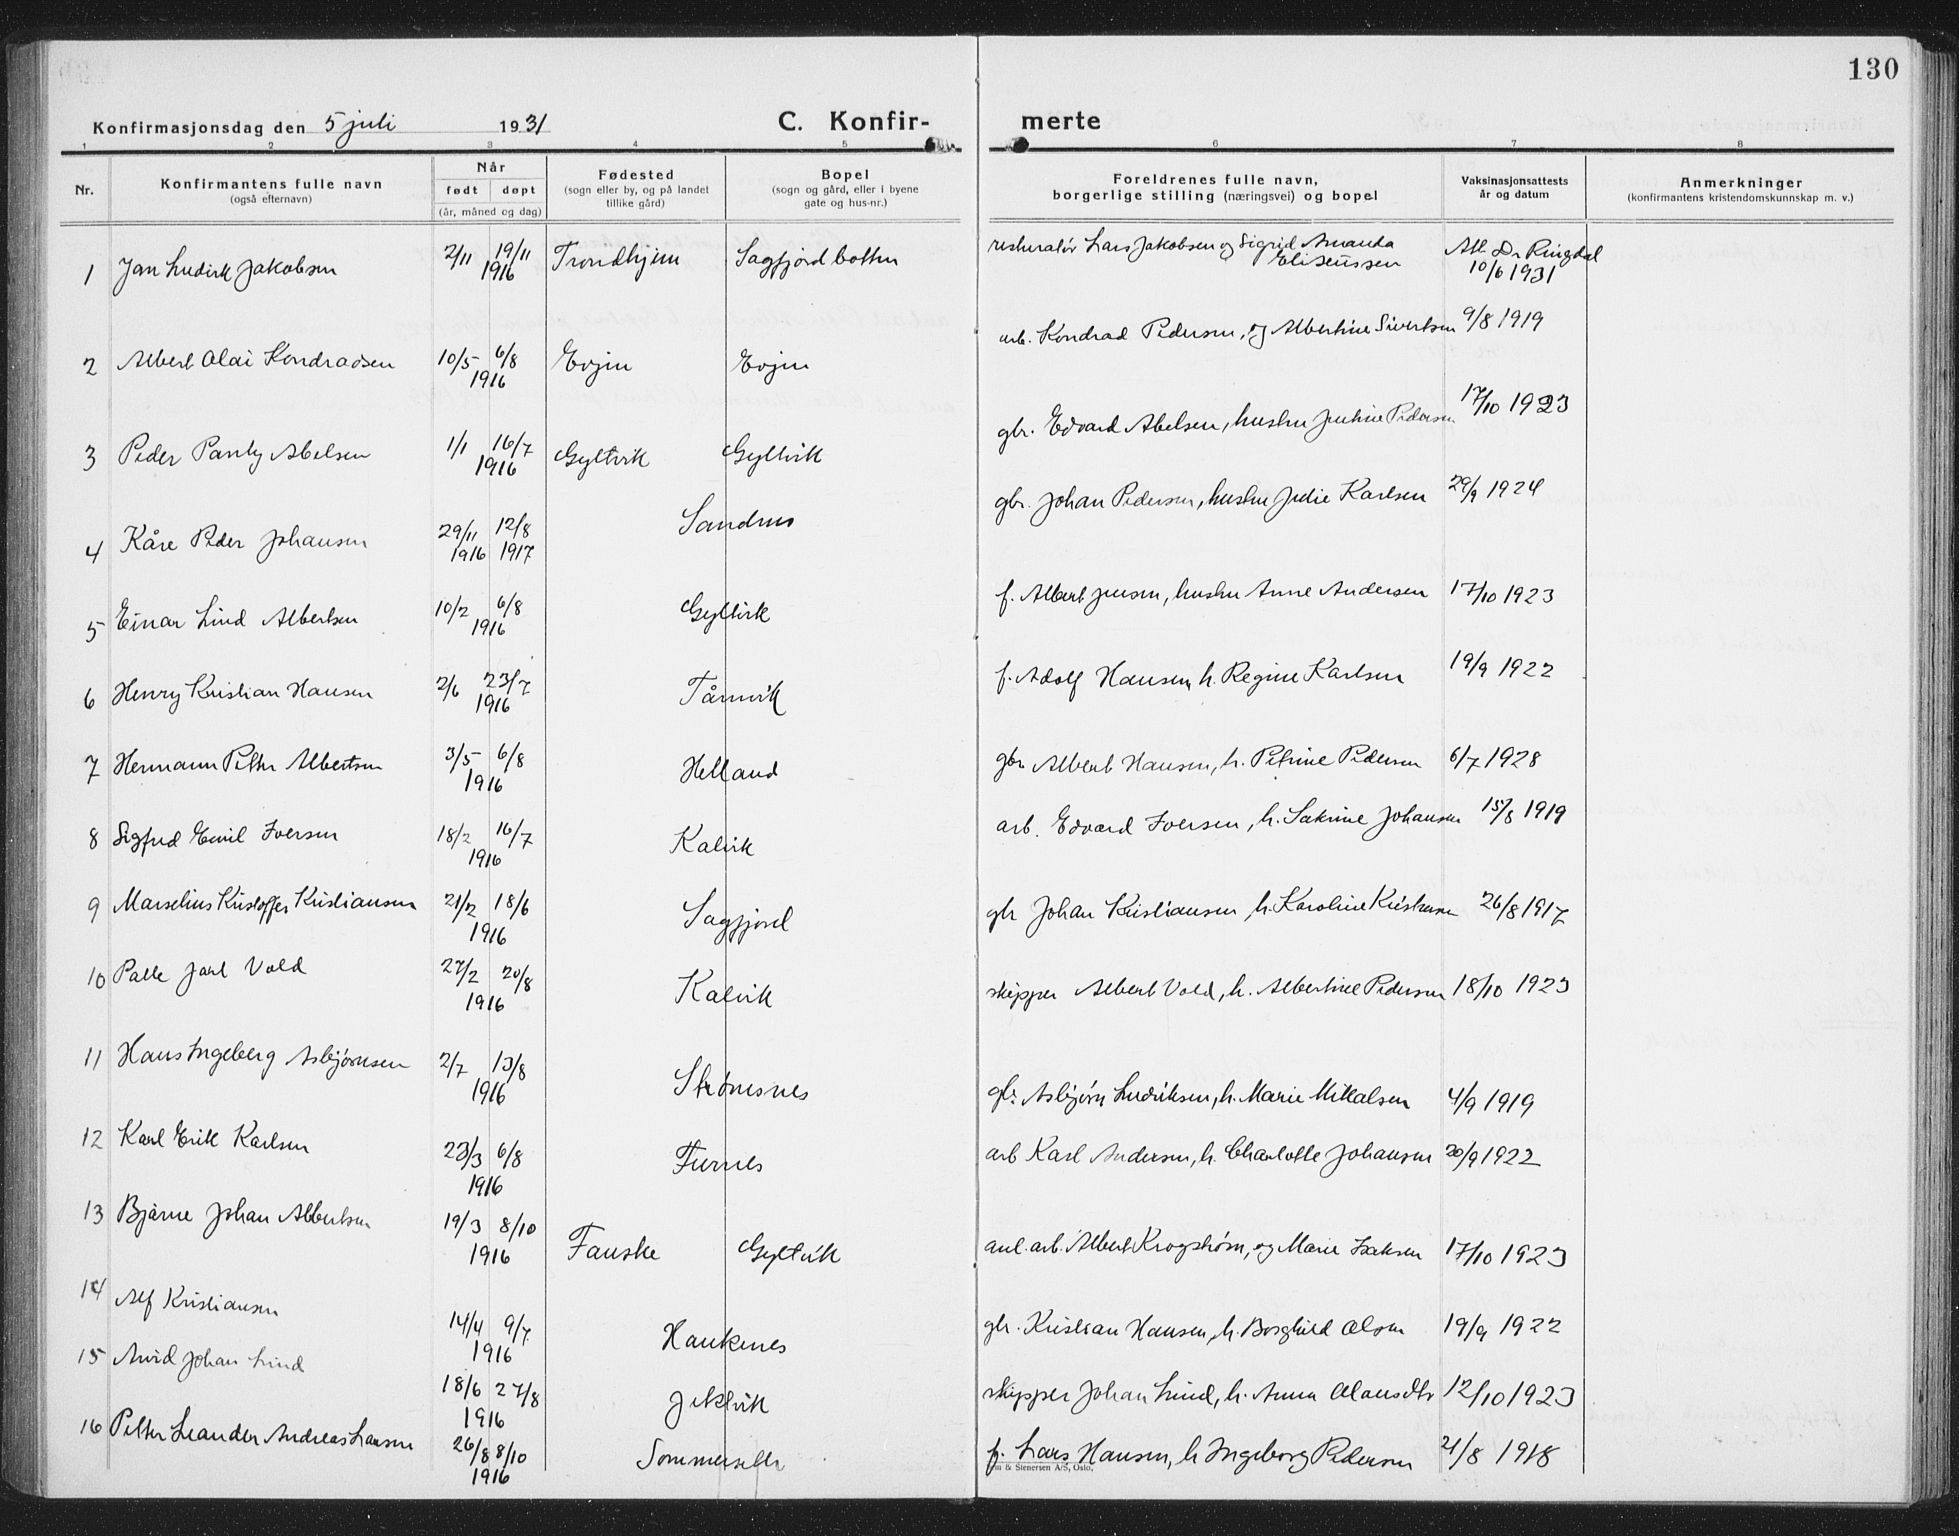 130
Konfirmasjonsdag den 5 juli 1931
C. Konfir-merte
1 2 3 4 5 6 7 8
Nr.
Konfirmantens fulle navn
(også efternavn)
Når
født døpt
(år, måned og dag)
Fødested
(sogn eller by, og på landet
tillike gård)
Bopel
(sogn og gård, eller i byene
gate og hus-nr.)
Foreldrenes fulle navn,
borgerlige stilling (næringsvei) og bopel
Vaksinasjonsattests
år og datum
Anmerkninger
(konfirmantens kristendomskunnskap m. v.)
1 Jan Ludvik Jakobsen 2/11 19/11 1916 Trondhjem Sagfjordbotten Lars Jakobsen og Sigrid Amanda Eliseussen Att. Dr Ringdal 10/6 1931
2 Albert Olai Kondradsen 10/5 6/8 1916 Evjen Evjen arb. Kondrad Pedersen, og Albertine Sivertsen 9/8 1919
3 Peder Abelsen 1/1 16/7 1916 Gyltvik Gyltvik gbr. Edvard Abelsen, hustru Pedersen 17/10 1923
4 Kåre Peder Johansen 29/11 1916 12/8 1917 Sandnes gbr. Johan Pedersen, hustru Julie Karlsen 29/9 1924
5 Einar Lind Albertsen 10/2 6/8 1916 Gyltvik f. Albert Jensen, hustru Anne Andersen 17/10 1923
6 Henry Kristian Hansen 2/6 23/7 1916 Tårnvik f. Adolf Hansen, h. Regine Karlsen 19/9 1922
7 Hermann Petter Albertsen 3/5 6/8 1916 Helland gbr Albert Hansen, h. Petrine Pedersen 6/7 1928
8 Sigfred Emil Iversen 18/2 16/7 1916 Kalvik arb. Edvard Iversen, h. Sakrine Johansen 15/8 1919
9 Marselius Kristoffer Kristiansen 21/2 18/6 1916 Sagfjord gbr Johan Kristiansen, h. Karoline 26/8 1917
10 Palle Jarl Vold 27/2 20/8 1916 Kalvik skipper Albert Vold, h. Albertine Pedersen 18/10 1923
11 Hans Ingeberg Asbjørnsen 2/7 13/8 1916 Strømsnes gbr. Asbjørn Ludviksen, h. Marie Mikkalsen 4/9 1919
12 Karl Erik Karlsen 23/3 6/8 1916 Furnes arb Karl Andersen, h. Charlotte Johansen 20/9 1922
13 Bjarne Johan Albertsen 19/3 8/10 1916 Fauske Gyltvik anl. arb. Albert Krogstrøm, og Marie Isaksen 17/10 1923
14 Alf Kristiansen 14/4 9/7 1916 Haukenes gbr. Kristian Hansen, h. Borghild Olsen 19/9 1922
15 Arvid Johan Lind 18/6 27/8 1916 Jektvik skipper Johan Lind, h. Anna Olausdtr 12/10 1923
16 Petter Leander Andreas Larsen 26/8 8/10 1916 Sommerselle f. Lars Hansen, h Ingeborg Pedersen 21/8 1918
& Stenersen A/S, Oslo.